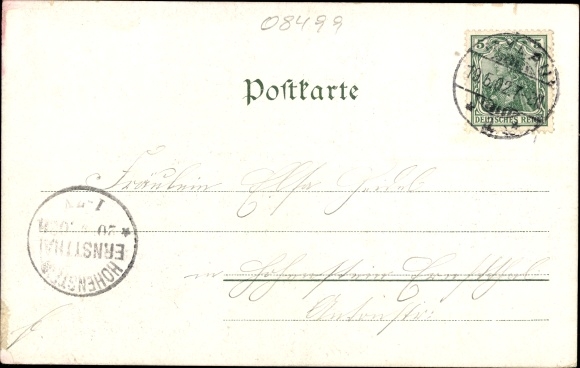 08499
Postkarte
5 5
DEUTSCHES REICH
Fräulein Elsa Heidel
in Hohenstein Ernstthal
Antonstr:
HOHENSTEIN
ERNSTTHAL